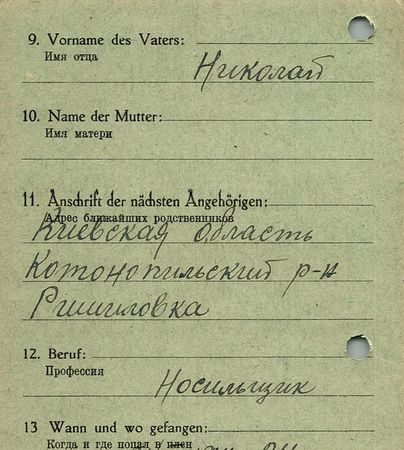 9. Vorname des Vaters:
Имя отца
Николай
10. Name der Mutter:
Имя матери
11. Anschrift der nächsten Angehörigen:
Адрес ближайших родственников
Киевская область
Котонопильский р-н
Ришиловка
12. Beruf:
Профессия
Носильщик
13 Wann und wo gefangen:
Когда и где попал в плен